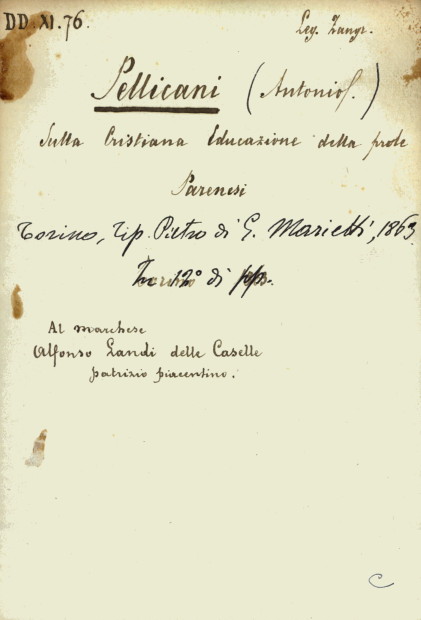 DD. XI. 76.
Leg. Zangr.
Pellicani (Antonio f.)
Sulla Cristiana Educazione della prole
Parenesi
Torino, Tip. Pietro di G. Marietti, 1863
In 12° di pp.
Al marchese
Alfonso Landi delle Caselle
patrizio piacentino.
C